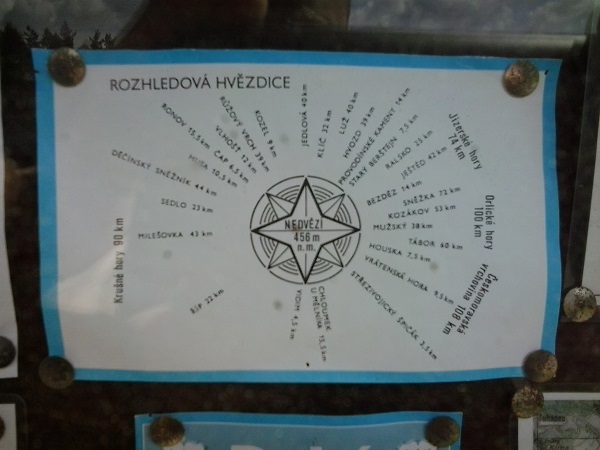 ROZHLEDOVÁ HVĚZDICE
KRUŠNÉ hory 90 km
MILEŠOVKA 43 km
SEDLO 23 km
DĚČÍNSKÝ SNĚŽNÍK 44 km
HUSA 10,5 km
RONOV 15,5 km
ČAP 6,5 km
VLHOŠŤ 12 km
RŮŽOVÝ VRCH 39 km
KOZEL 9 km
JEDLOVÁ 40 km
KLÍČ 32 km
LUŽ 40 km
HVOZD 39 km
PROVODÍNSKÉ KAMENY 14 km
STARÝ BERŠTEJN 7,5 km
RALSKO 25 km
JEŠTĚD 42 km
Jizerské hory
74 km
BEZDĚZ 14 km
SNĚŽKA 72 km
KOZÁKOV 53 km
MUŽSKÝ 38 km
Orlické hory
100 km
TÁBOR 60 km
HOUSKA 7,5 km
VRÁTENSKÁ HORA 9,5 km
STŘEZIVOJICKÝ ŠPIČÁK 2,5 km
Českomoravská
vrchovina 108 km
CHLOUMEK
U MĚLNÍKA 15,5 km
VRCH 4,5 km
ŘÍP 22 km
NEDVĚZÍ
456 m
n.m.